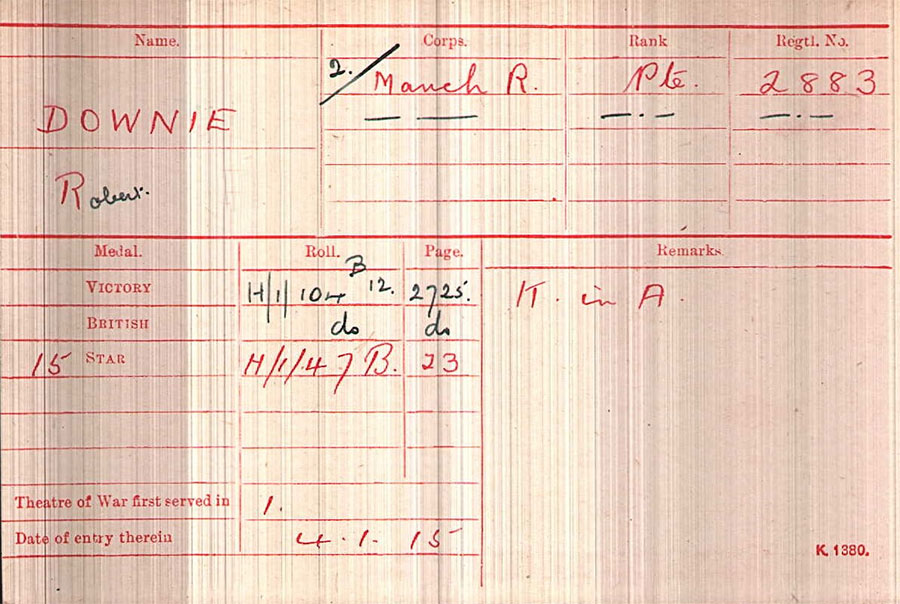 Name. Corps. Rank Regtl. No.
DOWNIE 2./ Manch R. Pte. 2883
— — —.— —.—
Robert.
Medal. Roll. Page. Remarks.
VICTORY H/1/104 B 12. 2725. K. in A.
BRITISH do do
15 STAR H/1/47 B. 23
Theatre of War first served in 1.
Date of entry therein 4.1.15
K. 1380.